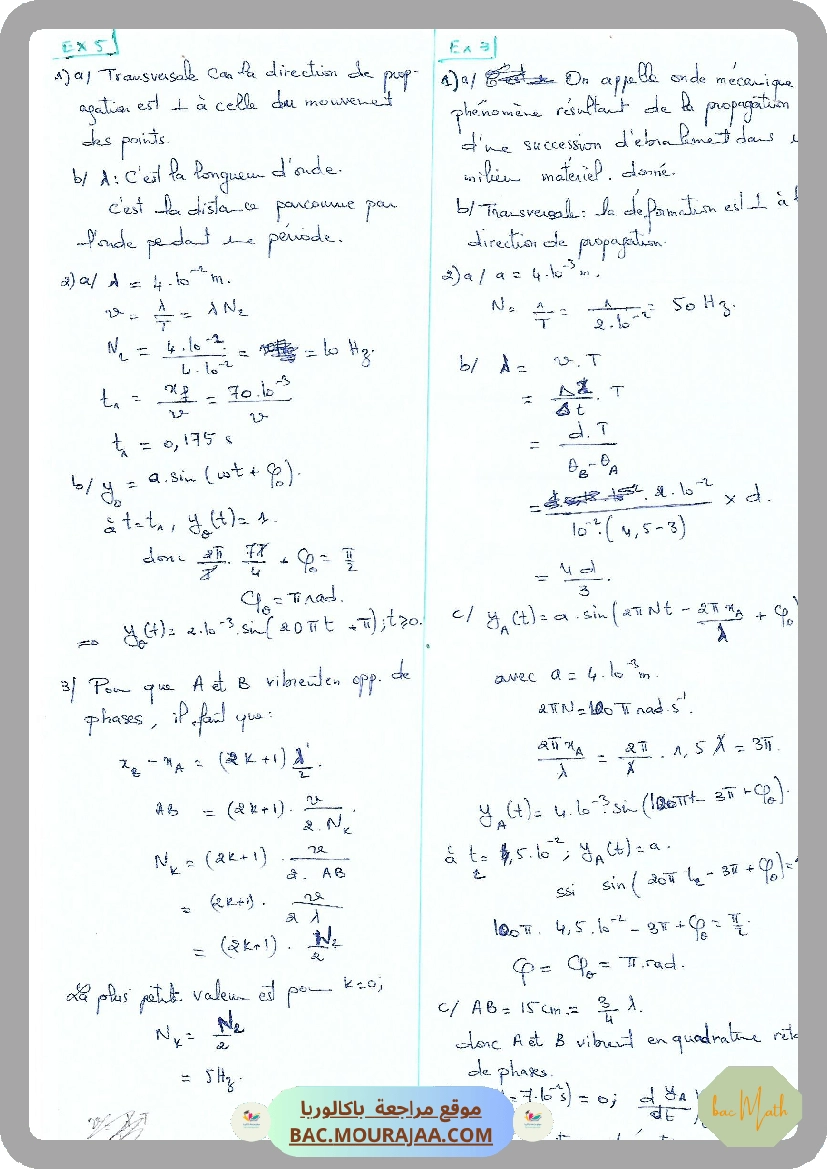 EX 5
1) a/ Transversale Car la direction de prop-
agation est ⊥ à celle du mouvement
des points.
b/ λ: C'est la longueur d'onde.
c'est la distance parcourue par
l'onde pendant une période.
2) a/ λ = 4.10⁻² m.
v = λ/T = λ N₂
= 10 Hz.
t₁ = = 70.10⁻³/v
t₁ = 0,175 s
b/ y₀ = a.sin(ωt + φ₀).
à t=t₁, y₀(t)= 1.
donc + φ₀ = π/2
φ₀ = π rad.
=> y₀(t) = 2.10⁻³.sin(20πt + π); t≥0.
3/ Pour que A et B vibrent en opp. de
phases, il faut que:
x_B - x_A = (2k+1) λ/2.
AB = (2k+1). v/(2.N_k)
N_k = (2k+1) . v/(2. AB)
= (2k+1) . v/(2 λ)
= (2k+1) . N₂/2
La plus petite valeur est pour k=0;
N_k = N₂/2
= 5Hz.
Ex 3
1) a/ On appelle onde mécanique
phénomène résultant de la propagation
d'une succession d'ébralement dans
milieu matériel. donné.
b/ Transversale: la déformation est ⊥ à
direction de propagation.
2) a/ a = 4.10⁻³ m.
N = 1/T = 1/(2.10⁻²) = 50 Hz.
b/ λ = v.T
= . T
= d.T/(θ_B - θ_A)
= 2.10⁻²/(10⁻².(4,5-3)) × d.
= 4d/3.
c/ y_A(t) = a.sin(2πNt - 2πx_A/λ + φ₀)
avec a = 4.10⁻³ m.
2πN = 100π rad.s⁻¹.
2πx_A/λ = 2π/λ . 1,5 λ = 3π.
y_A(t) = 4.10⁻³ sin(100πt - 3π + φ₀).
à y_A(t) = a.
ssi sin( - 3π + φ₀) =
100π. 4,5.10⁻² - 3π + φ₀ = π/2.
φ = φ₀ = π.rad.
c/ AB = 15 cm = 3/4 λ.
donc A et B vibrent en quadrature
de phases.
= 0; dy_A/dt
موقع مراجعة باكالوريا
BAC.MOURAJAA.COM
bac Math